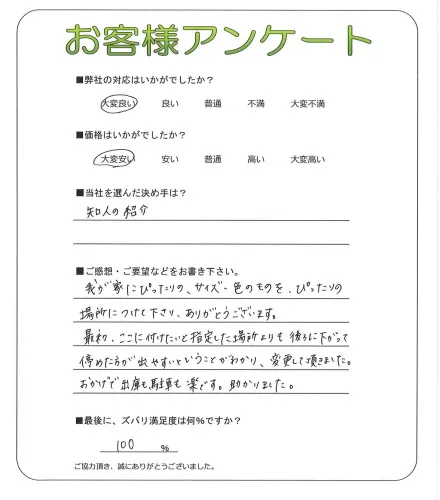 お客様アンケート
■弊社の対応はいかがでしたか？
大変良い 良い 普通 不満 大変不満
■価格はいかがでしたか？
大変安い 安い 普通 高い 大変高い
■当社を選んだ決め手は？
知人の紹介
■ご感想・ご要望などをお書き下さい。
我が家にぴったりの、サイズ・色のものを、ぴったりの
場所につけて下さり、ありがとうございます。
最初、ここに付けたいと指定した場所よりも後ろに下がって
停めた方が出やすいということがわかり、変更して頂きました。
おかげで出庫も駐車も楽です。助かりました。
■最後に、ズバリ満足度は何%ですか？
100 %
ご協力頂き、誠にありがとうございました。